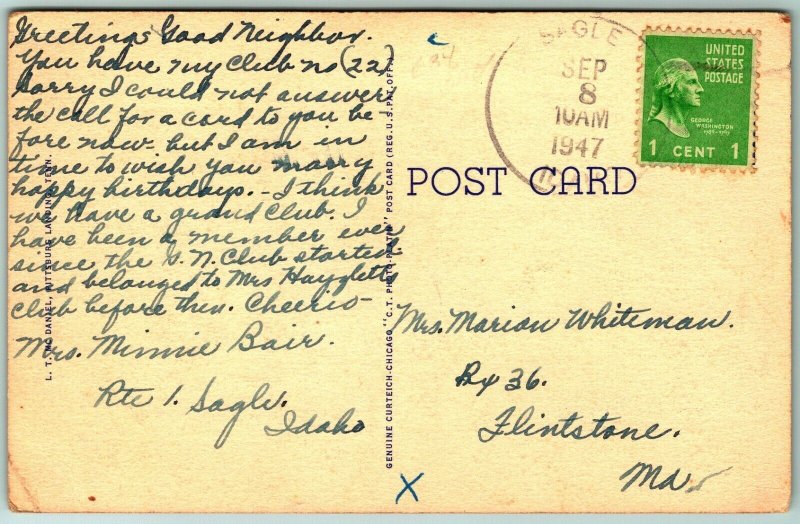 Greetings Good Neighbor.
You have my Club no (22)
Sorry I could not answer
the call for a card to you be-
fore now. but I am in
time to wish you marry
happy birthdays. - I think
we have a grand Club. I
have been a member ever
since the G.N. Club started
and belonged to Mrs Haygletts
Club before then. Cheerio-
Mrs. Minnie Bair.
Rte 1. Sagle.
Idaho
L. T. MC DANIEL, PITTSBURG LANDING, TENN.
GENUINE CURTEICH-CHICAGO "C.T. PHOTO-PLATIN" POST CARD (REG. U.S. PAT. OFF.)
SAGLE
SEP
8
10AM
1947
UNITED
STATES
POSTAGE
GEORGE
WASHINGTON
1 CENT 1
POST CARD
Mrs. Marion Whiteman.
Bx 36.
Flintstone.
Md
X